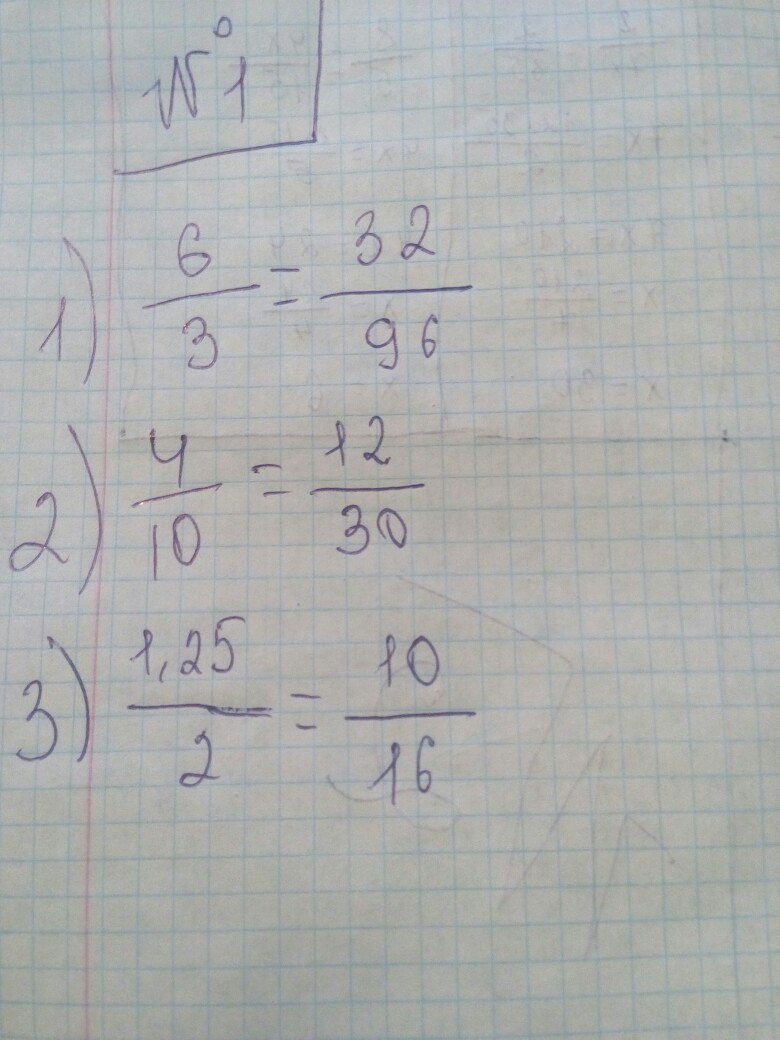 №1
1) 6/3 = 32/96
2) 4/10 = 12/30
3) 1,25/2 = 10/16